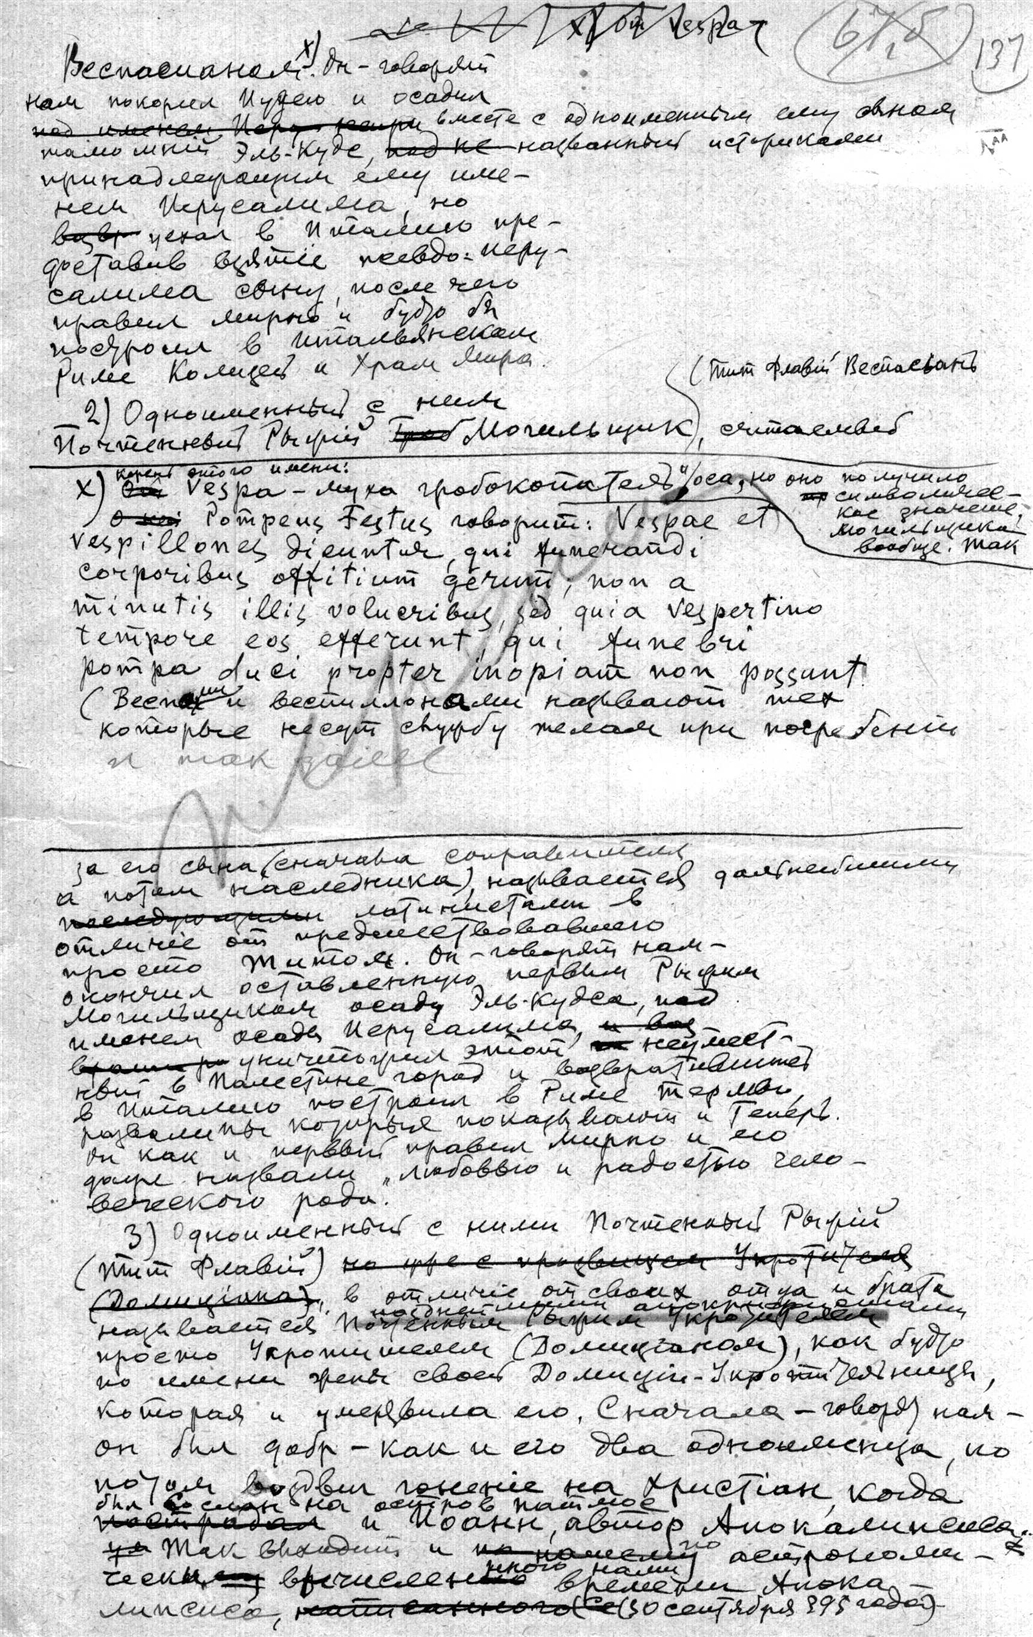 х) от Vespa
67,б
137
Веспасианом х). Он - говорят
нам покорил Иудею и осадил
вместе с одноименным ему сыном
тамошній Эль-Кудс, названный историками
принадлежащим ему име-
нем Иерусалима, но
уехал в Италию пре-
доставив взятіе псевдо-Иеру-
салима сыну, после чего
правил мирно и будто бы
построил в Итальянском
Риме Колизей и Храм Мира.
(Тит Флавій Веспасьянъ
2) Одноименный с ним
Почтенный Рыжій Могильщик), считаемый
х) корень этого имени:
Vespa - муха гробокопатель, оса, но оно получило
символичес-
кое значение
могильщика
вообще. Так
Pompeus Festus говорит: Vespae et
vespillones dicuntur, qui funerandi
corporibus offitium gerunt, non a
minutis illis volucribus, sed quia vespertino
tempore eos efferunt, qui funebri
pompa duci propter inopiam non possunt.
(Веспами и веспиллонами называют тех
которые несут службу телам при погребеніи
и так далее
за его сына (сначала соправителя
а потом наследника), называется дальнейшими
латинистами в
отличіе от предшествовавшего
просто Титом. Он - говорят нам -
окончил оставленную первым Рыжим
Могильщиком осаду Эль-Кудса, под
именем осады Иерусалима,
уничтожил этот неумест-
ный в Палестине город и возвратившись
в Италию построил в Риме термы,
развалины которых показывают и теперь.
Он как и первый правил мирно и его
даже назвали „любовью и радостью чело-
веческого рода.
3) Одноименный с ними Почтенный Рыжій
(Тит Флавій) но уже с прозвищем Укротителя
(Домиціана), в отличіе от своих отца и брата
называется Почтенным Рыжим Укротителем
просто Укротителем (Домиціаном), как будто
по имени жены своей Домиціи-Укротительницы,
которая и умертвила его. Сначала - говорят нам -
он был добр - как и его два одноименца, но
потом воздвиг гоненіе на христіан, когда
был сослан на остров Патмос
и Иоанн, автор Апокалипсиса.
Так выходит и по астрономи-
ческому вычисленію
времени Апока-
липсиса, (30 сентября 395 года)